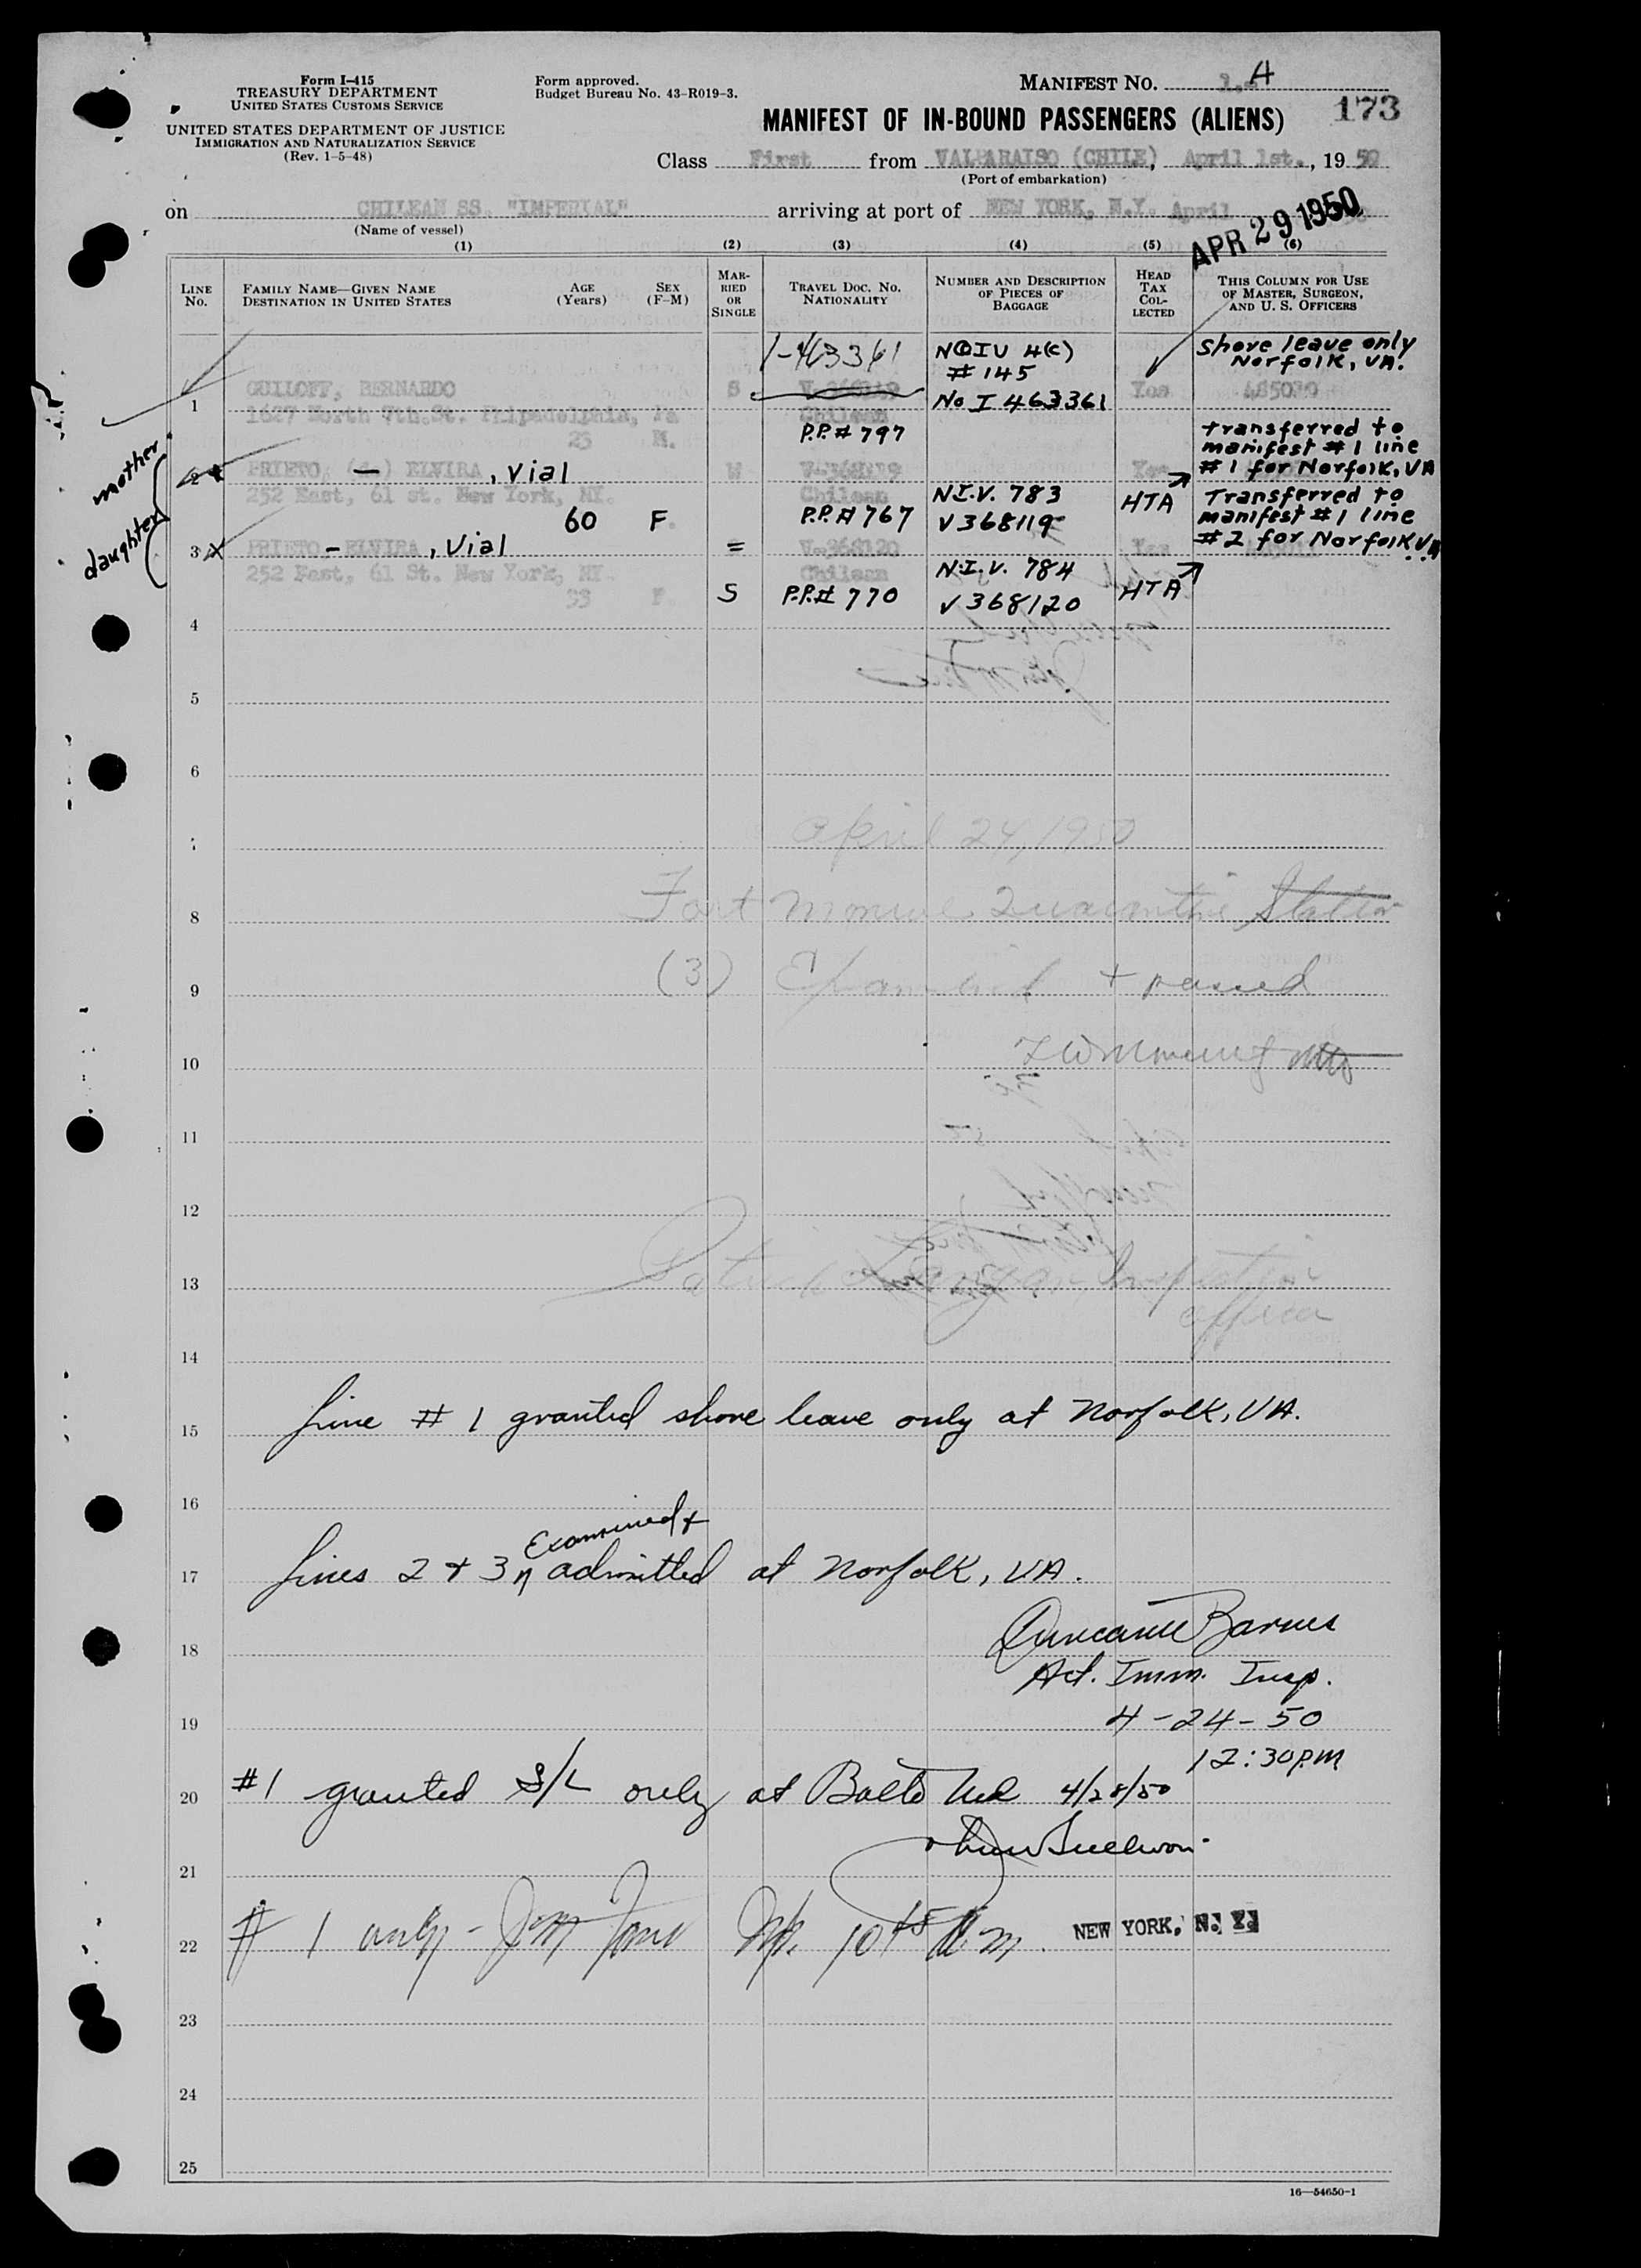 Form I-415
TREASURY DEPARTMENT
UNITED STATES CUSTOMS SERVICE
UNITED STATES DEPARTMENT OF JUSTICE
IMMIGRATION AND NATURALIZATION SERVICE
(Rev. 1-5-48)
Form approved.
Budget Bureau No. 43-R019-3.
MANIFEST NO. A
173
MANIFEST OF IN-BOUND PASSENGERS (ALIENS)
Class First from VALPARAISO (CHILE), April 1st., 1950
(Port of embarkation)
on CHILEAN SS. "IMPERIAL" arriving at port of NEW YORK, N.Y. April
(Name of vessel)
APR 29 1950
(1) (2) (3) (4) (5) (6)
LINE No.
FAMILY NAME—GIVEN NAME
DESTINATION IN UNITED STATES
AGE (Years)
SEX (F-M)
MARRIED OR SINGLE
TRAVEL DOC. NO.
NATIONALITY
NUMBER AND DESCRIPTION OF PIECES OF BAGGAGE
HEAD TAX COLLECTED
THIS COLUMN FOR USE OF MASTER, SURGEON, AND U. S. OFFICERS
I-463361
NQIV 4(c)
# 145
No I 463361
shore leave only
Norfolk, VA.
1 GUILOFF, BERNARDO S Yes 485030
1627 North 7th.St. Philpadelphia, Pa Chilean
23 M. P.P. # 797
mother
daughter
transferred to
manifest # 1 line
# 1 for Norfolk, VA
2 PRIETO, ELVIRA, Vial W V-368119 Yes
252 East, 61 st. New York, NY. Chilean
60 F. P.P. # 767
N.I.V. 783
V 368119
HTA
Transferred to
manifest #1 line
#2 for Norfolk VA
3 PRIETO - ELVIRA, Vial = V-368120 Yes
252 East, 61 St. New York, NY. Chilean
33 F. S P.P.# 770
N.I.V. 784
V 368120
HTA
4
5
6
7
April 24, 1950
8 Fort Monroe Quarantine Station
9 (3) Examined + passed
10
11
12
13 Patrick Inspection
officer
14
15 Line # 1 granted shore leave only at Norfolk, VA.
16
Examined +
17 Lines 2 + 3 admitted at Norfolk, VA.
18 Barnes
Act. Imm. Insp.
19 4-24-50
12:30 pm
20 #1 granted S/L only at Balto Md 4/28/50
21
22 # 1 only - NEW YORK, N. Y.
23
24
25
16—54650-1